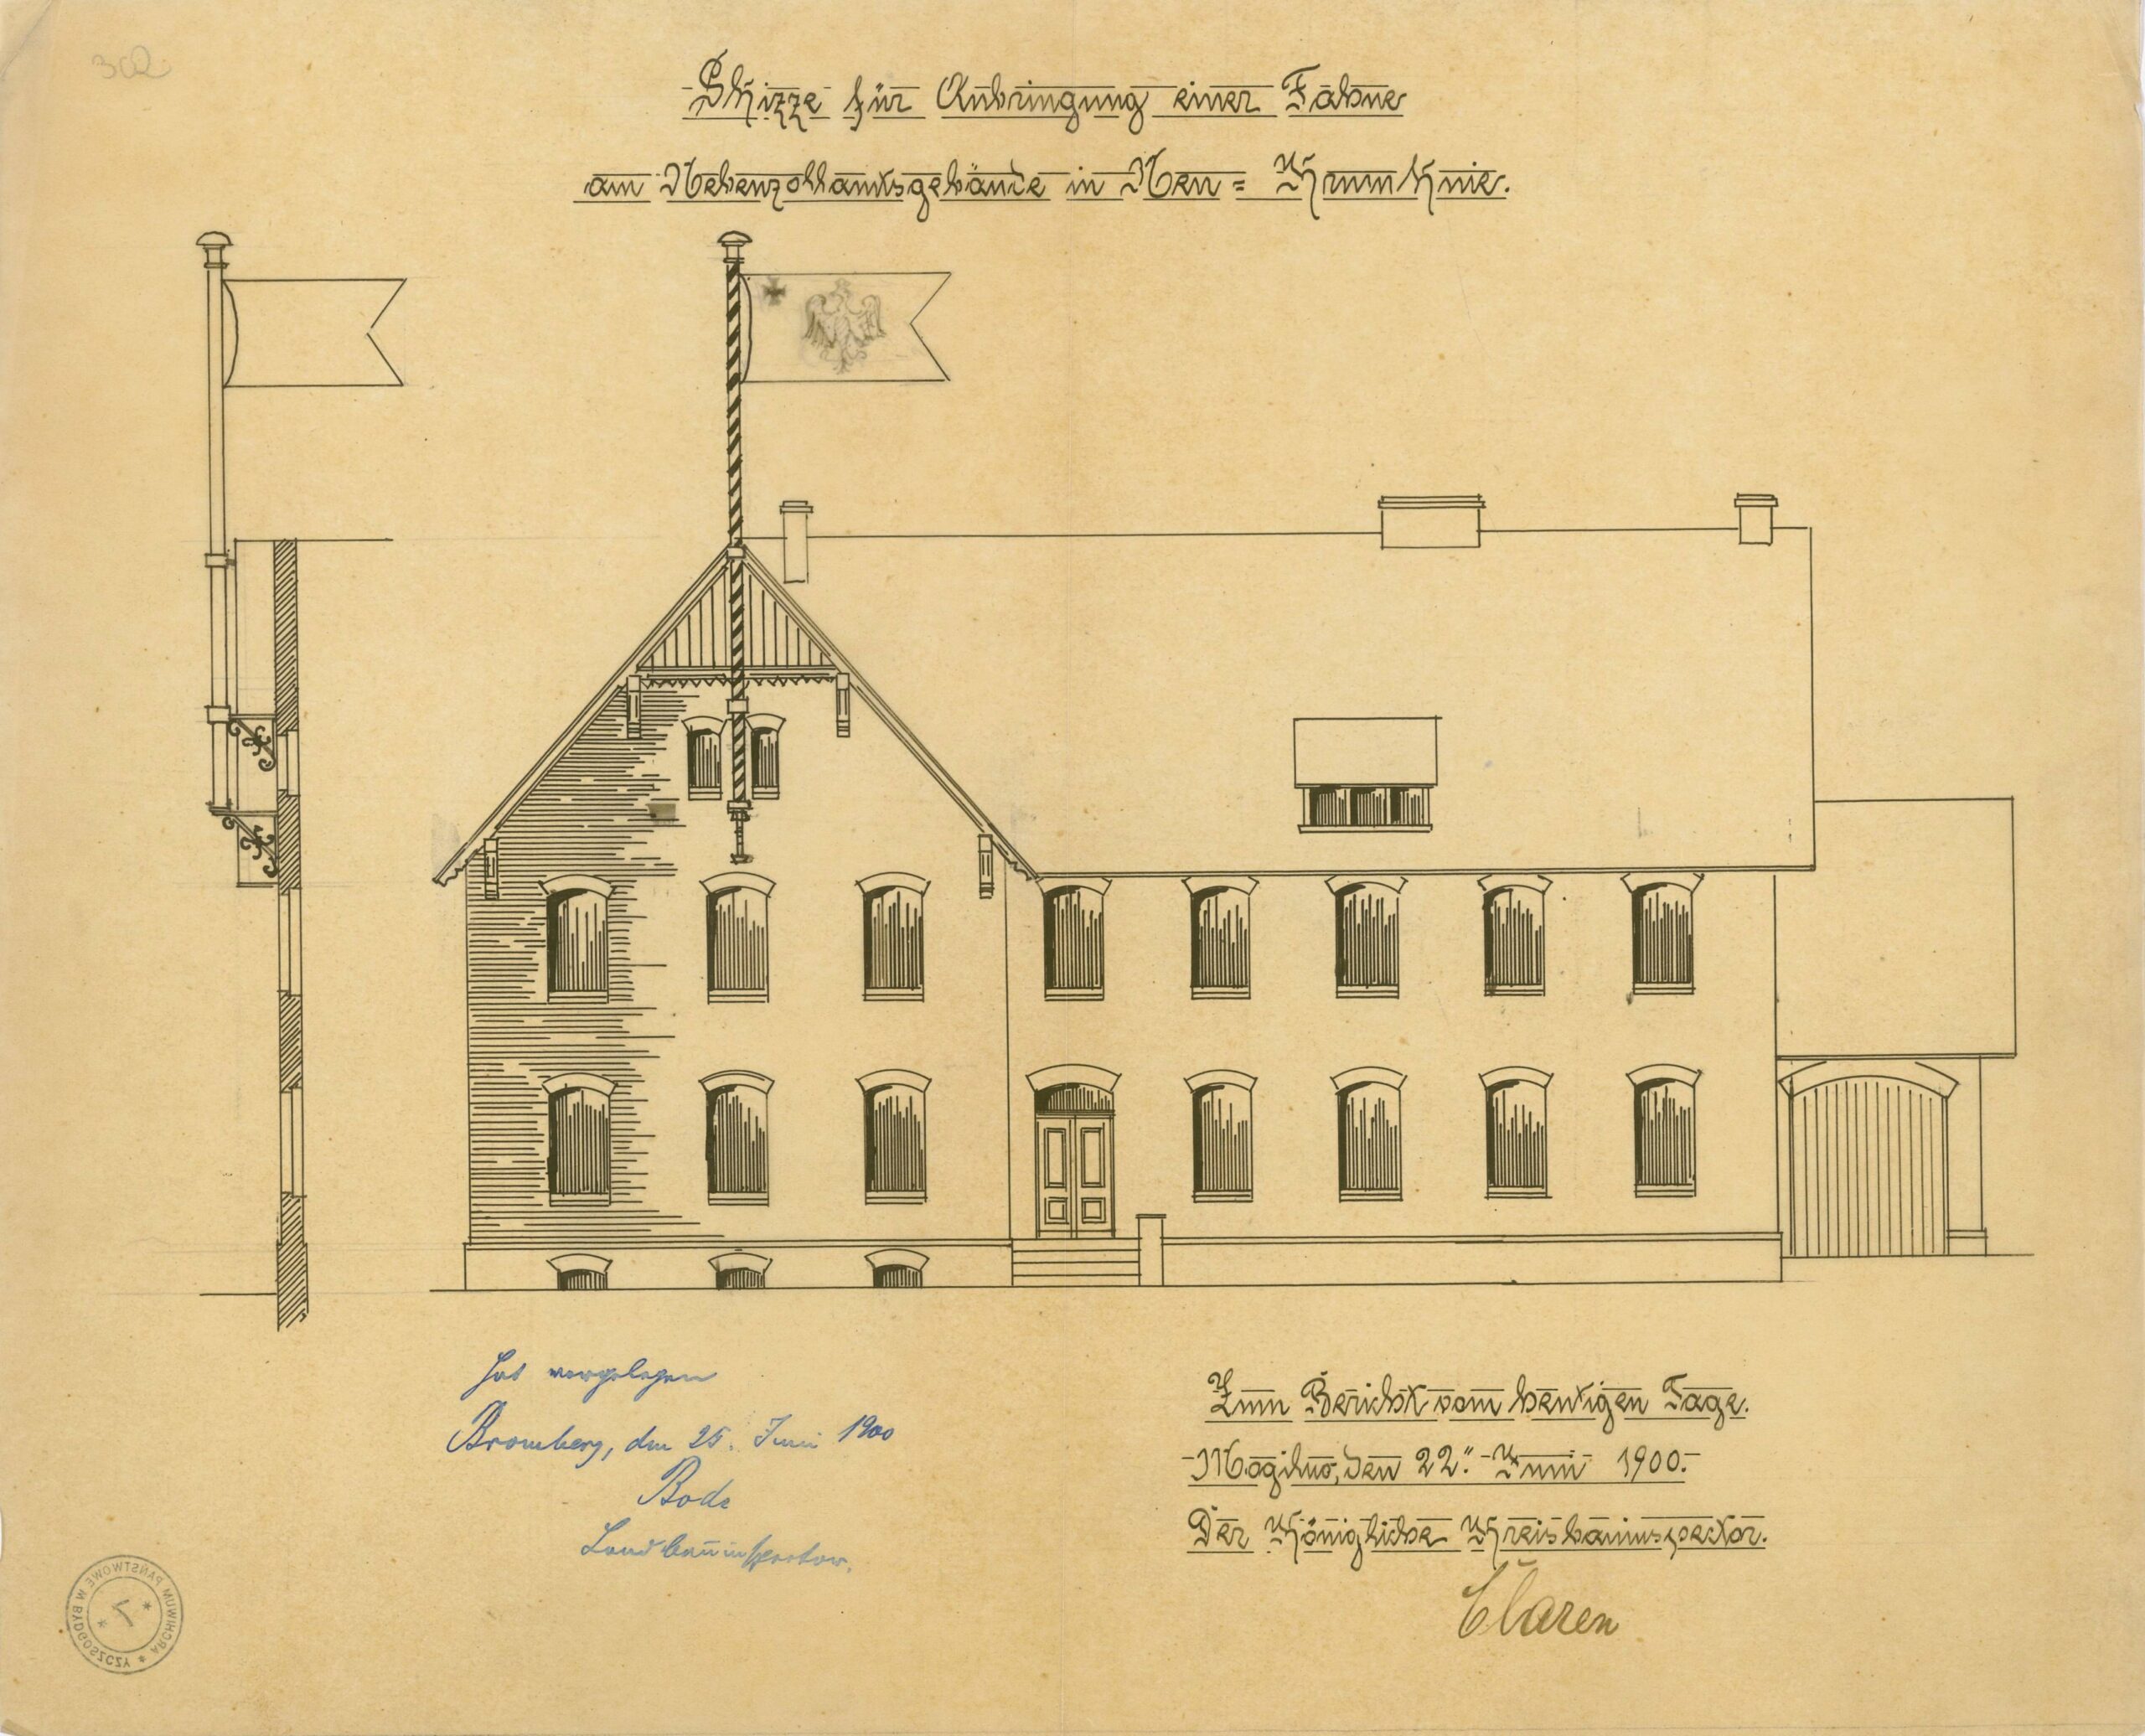 302
Skizze für Anbringung einer Fahne
am Nebenzollamtsgebäude in Neu = Krumknie.
Hat vorgelegen
Bromberg, den 25. Juni 1900
Bode
Landbauinspektor.
Zum Bericht vom heutigen Tage.
Mogilno, den 22. Juni 1900.
Der Königliche Kreisbauinspektor.
Claren
ARCHIWUM PAŃSTWOWE W BYDGOSZCZY